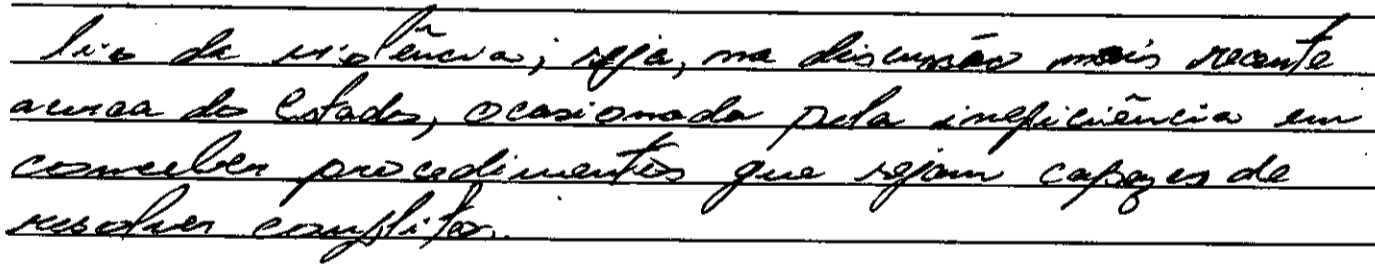 lio da violência; seja, na discussão mais recente
acerca do Estado, ocasionada pela ineficiência em
conceber procedimentos que sejam capazes de
resolver conflitos.